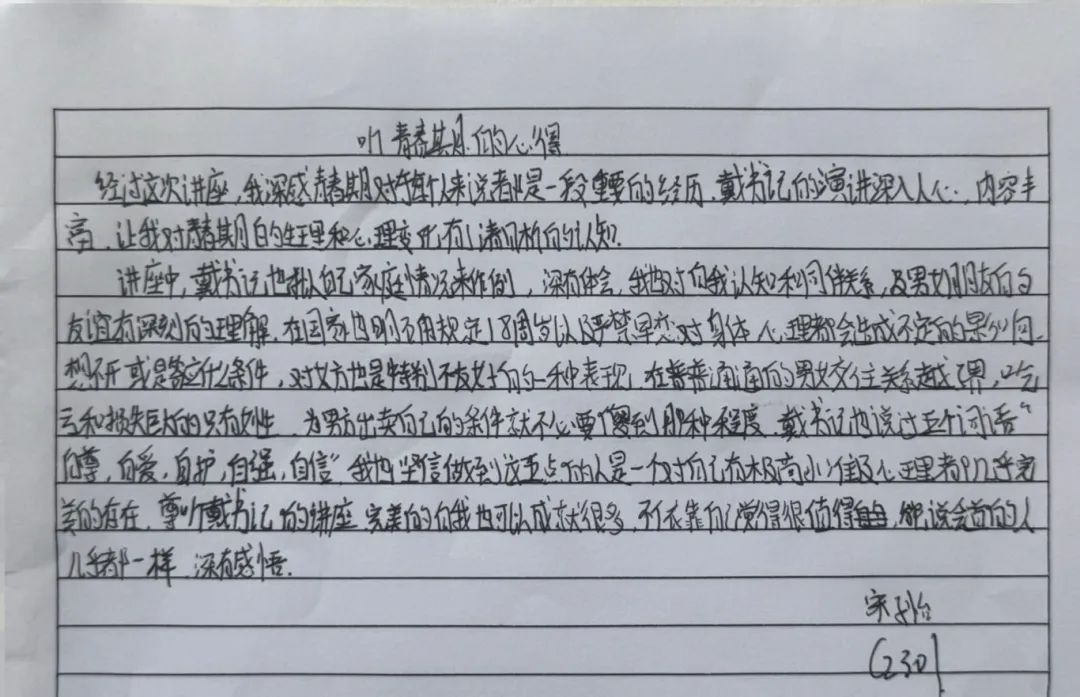 听青春期的心得
经过这次讲座,我深感青春期对于每个人来说都是一段重要的经历,戴书记的演讲深入人心,内容丰
富,让我对青春期的生理和心理变化有了清晰的认知.
讲座中,戴书记也拟自己家庭情况来作例,深有体会,我也对自我认知和同伴关系,及男女朋友的
友谊有深刻的理解.在国家也明确规定18周岁以及严禁早恋对身体心理都会造成不定的影响.
想不开或是答应什么条件,对女方也是特别不友好的一种表现,在普普通通的男女交往关系越了界,吃
亏和损失巨大的只有女性 为男方出卖自己的条件就不必要傻到那种程度 戴书记也说过五个词语“
自尊,自爱,自护,自强,自信”我也坚信做到这五点的人是一个对自己有极高 及心理都几乎完
美的存在,尊听戴书记的讲座 完美的自我也可以成就很多,不依靠自己觉得很值得 说会 的人
几乎都一样 深有感悟.
(230)